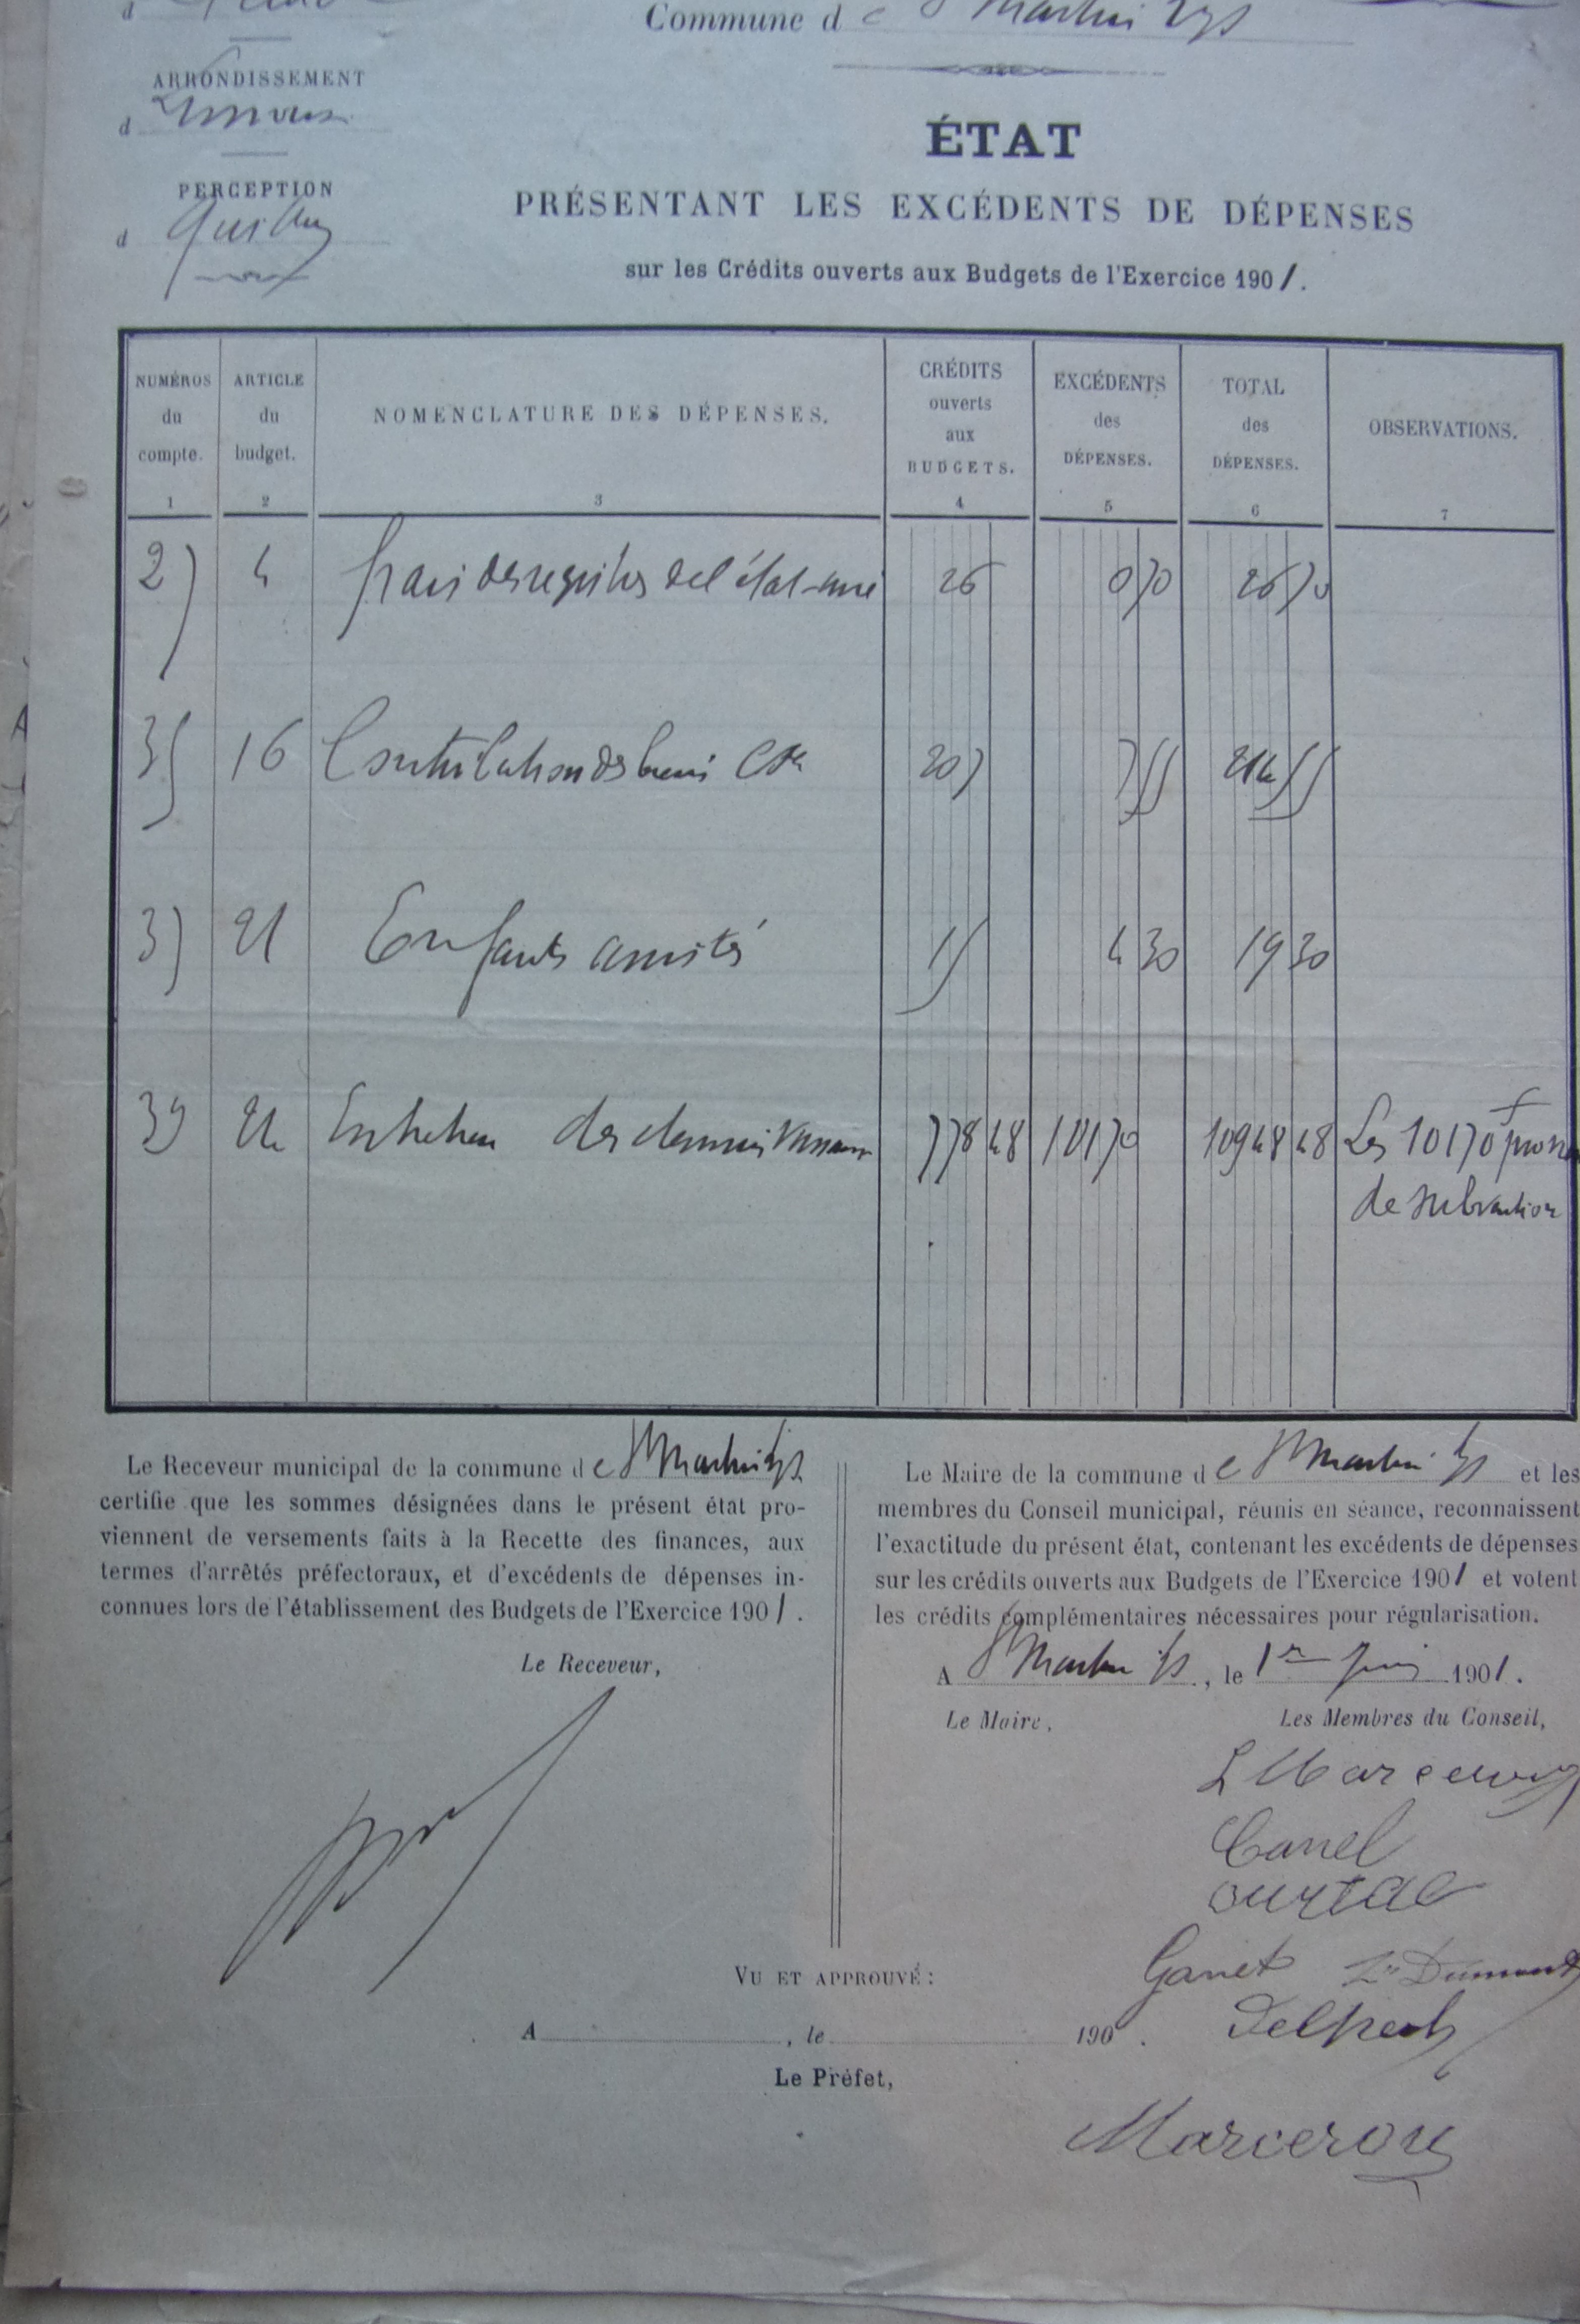 Commune de St Martin Lys
ARRONDISSEMENT
d Limoux
PERCEPTION
d Quillan
ÉTAT
PRÉSENTANT LES EXCÉDENTS DE DÉPENSES
sur les Crédits ouverts aux Budgets de l'Exercice 1901.
NUMÉROS du compte. 1
ARTICLE du budget. 2
NOMENCLATURE DES DÉPENSES. 3
CRÉDITS ouverts aux BUDGETS. 4
EXCÉDENTS des DÉPENSES. 5
TOTAL des DÉPENSES. 6
OBSERVATIONS. 7
27 4 frais des registres de l'état-civil 26 0 70 26 70
35 16 Contribution des biens Cx 207 7 55 214 55
37 21 Enfants assistés 15 4 30 19 30
39 24 Entretien des chemins vicinaux 778 48 10170 10948 48 Les 10170 f
de subvention
Le Receveur municipal de la commune de St Martin Lys
certifie que les sommes désignées dans le présent état pro-
viennent de versements faits à la Recette des finances, aux
termes d'arrêtés préfectoraux, et d'excédents de dépenses in-
connues lors de l'établissement des Budgets de l'Exercice 1901.
Le Receveur,
Le Maire de la commune de St Martin Lys et les
membres du Conseil municipal, réunis en séance, reconnaissent
l'exactitude du présent état, contenant les excédents de dépenses
sur les crédits ouverts aux Budgets de l'Exercice 1901 et votent
les crédits complémentaires nécessaires pour régularisation.
A St Martin Lys, le 1er Juin 1901.
Le Maire, Les Membres du Conseil,
L Marcerou
Canel
ourtal
Garret Dumons
Delpech
Marcerou
VU ET APPROUVÉ :
A , le 190 .
Le Préfet,